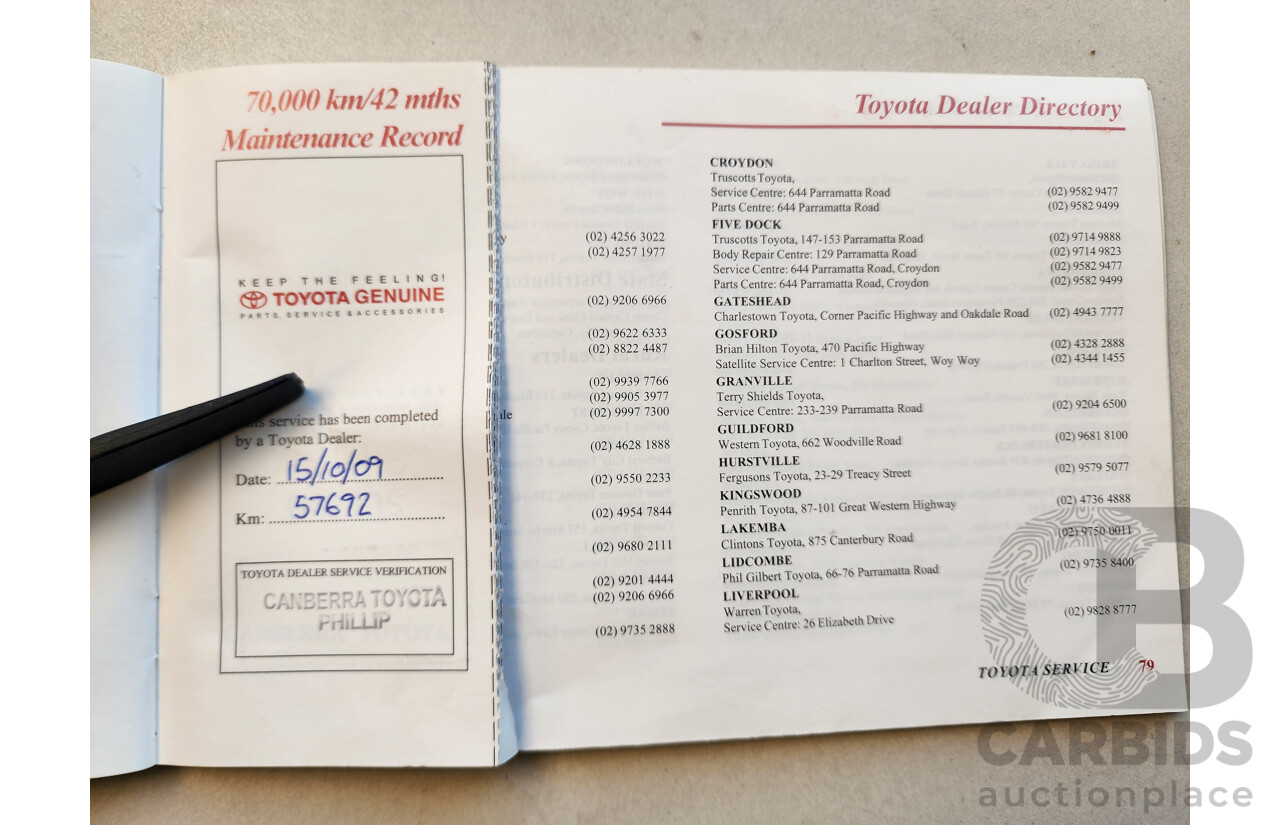 70,000 km/42 mths
Maintenance Record
KEEP THE FEELING!
TOYOTA GENUINE
PARTS, SERVICE & ACCESSORIES
service has been completed
by a Toyota Dealer:
Date: 15/10/09
Km: 57692
TOYOTA DEALER SERVICE VERIFICATION
CANBERRA TOYOTA
PHILLIP
(02) 4256 3022
(02) 4257 1977
(02) 9206 6966
(02) 9622 6333
(02) 8822 4487
(02) 9939 7766
(02) 9905 3977
(02) 9997 7300
(02) 4628 1888
(02) 9550 2233
(02) 4954 7844
(02) 9680 2111
(02) 9201 4444
(02) 9206 6966
(02) 9735 2888
Toyota Dealer Directory
CROYDON
Truscotts Toyota,
Service Centre: 644 Parramatta Road (02) 9582 9477
Parts Centre: 644 Parramatta Road (02) 9582 9499
FIVE DOCK
Truscotts Toyota, 147-153 Parramatta Road (02) 9714 9888
Body Repair Centre: 129 Parramatta Road (02) 9714 9823
Service Centre: 644 Parramatta Road, Croydon (02) 9582 9477
Parts Centre: 644 Parramatta Road, Croydon (02) 9582 9499
GATESHEAD
Charlestown Toyota, Corner Pacific Highway and Oakdale Road (02) 4943 7777
GOSFORD
Brian Hilton Toyota, 470 Pacific Highway (02) 4328 2888
Satellite Service Centre: 1 Charlton Street, Woy Woy (02) 4344 1455
GRANVILLE
Terry Shields Toyota,
Service Centre: 233-239 Parramatta Road (02) 9204 6500
GUILDFORD
Western Toyota, 662 Woodville Road (02) 9681 8100
HURSTVILLE
Fergusons Toyota, 23-29 Treacy Street (02) 9579 5077
KINGSWOOD
Penrith Toyota, 87-101 Great Western Highway (02) 4736 4888
LAKEMBA
Clintons Toyota, 875 Canterbury Road (02) 9750 0011
LIDCOMBE
Phil Gilbert Toyota, 66-76 Parramatta Road (02) 9735 8400
LIVERPOOL
Warren Toyota,
Service Centre: 26 Elizabeth Drive (02) 9828 8777
TOYOTA SERVICE 79
CB
CARBIDS
auctionplace